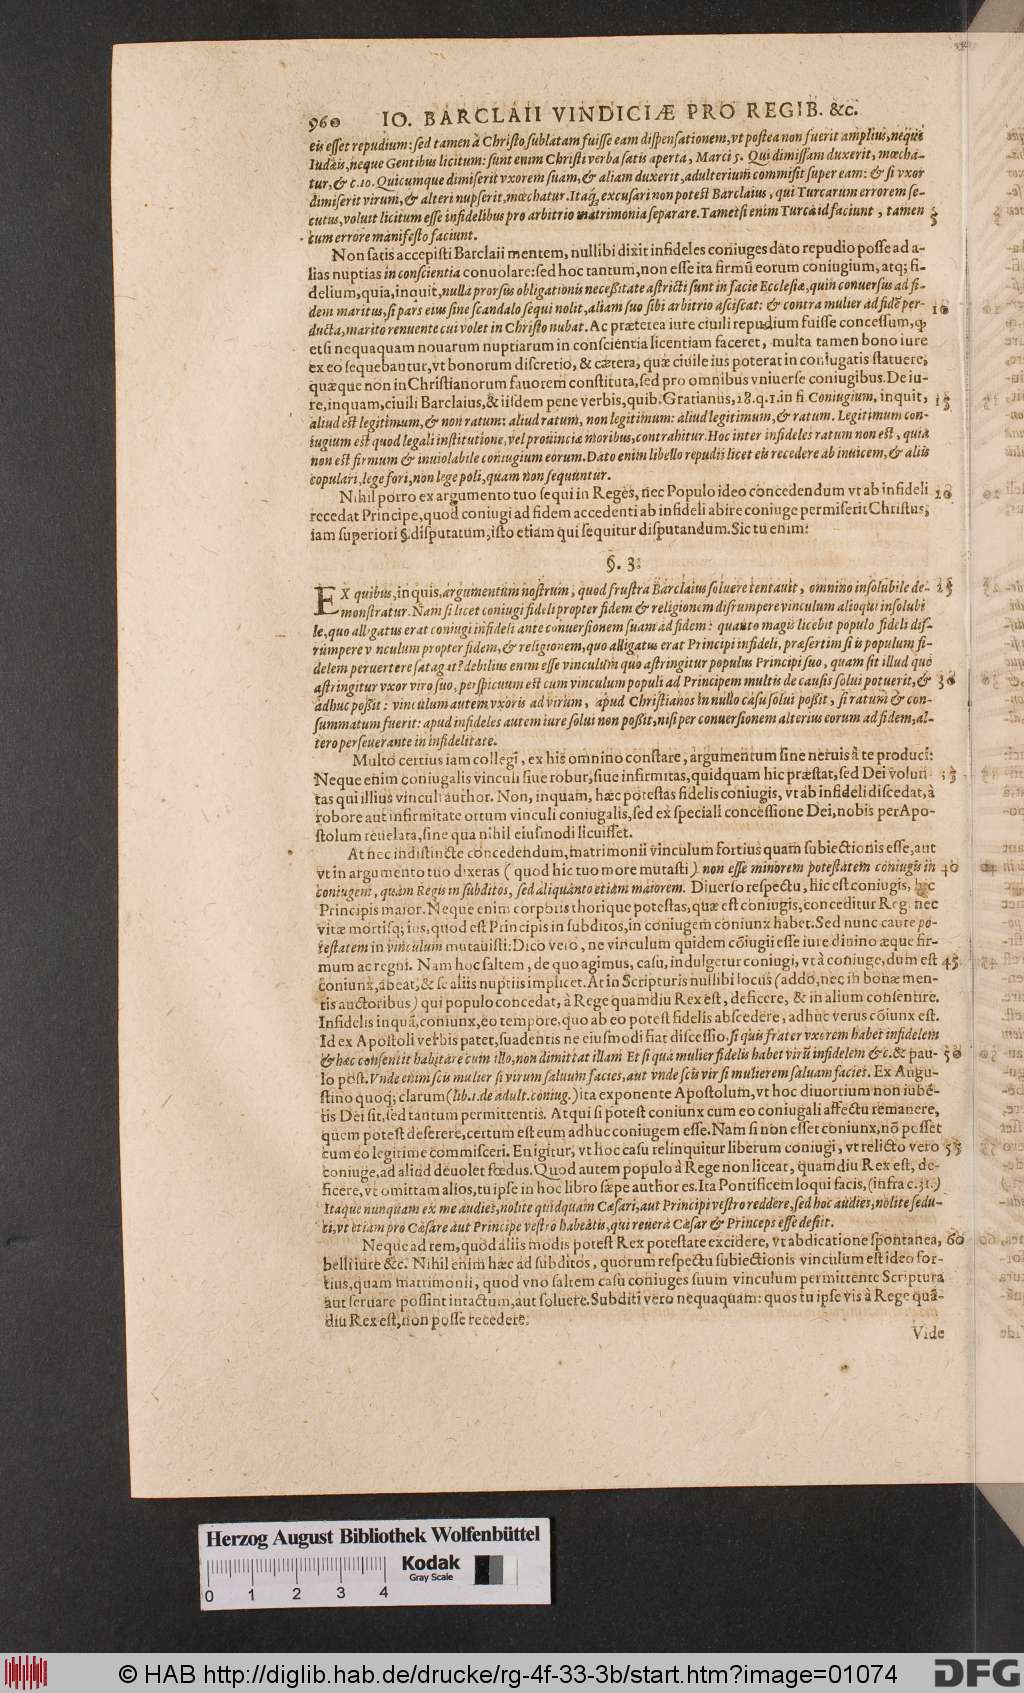 960 IO. BARCLAII VINDICIÆ PRO REGIB. &c.
eis esset repudium: sed tamen à Christo sublatam fuisse eam dispensationem, vt postea non fuerit amplius, neque
Iudæis, neque Gentibus licitum: sunt enim Christi verba satis aperta, Marci 5. Qui dimissam duxerit, mœcha-
tur, & c.10. Quicumque dimiserit vxorem suam, & aliam duxerit, adulterium commisit super eam: & si vxor
dimiserit virum, & alteri nupserit, mœchatur. Itaq; excusari non potest Barclaius, qui Turcarum errorem se-
cutus, voluit licitum esse infidelibus pro arbitrio matrimonia separare. Tametsi enim Turcæ id faciunt, tamen 5
cum errore manifesto faciunt.
Non satis accepisti Barclaii mentem, nullibi dixit infideles coniuges dato repudio posse ad a-
lias nuptias in conscientia conuolare: sed hoc tantum, non esse ita firmũ eorum coniugium, atq; fi-
delium, quia, inquit, nulla prorsus obligationis necessitate astricti sunt in facie Ecclesiæ, quin conuersus ad fi-
dem maritus, si pars eius sine scandalo sequi nolit, aliam suo sibi arbitrio asciscat: & contra mulier ad fidẽ per- 10
ducta, marito renuente cui volet in Christo nubat. Ac præterea iure ciuili repudium fuisse concessum, q;
etsi nequaquam nouarum nuptiarum in conscientia licentiam faceret, multa tamen bono iure
ex eo sequebantur, vt bonorum discretio, & cætera, quæ ciuile ius poterat in coniugatis statuere,
quæque non in Christianorum fauorem constituta, sed pro omnibus vniuerse coniugibus. De iu-
re, inquam, ciuili Barclaius, & iisdem pene verbis, quib. Gratianus, 28.q.1. in fi Coniugium, inquit, 15
aliud est legitimum, & non ratum: aliud ratum, non legitimum: aliud legitimum, & ratum. Legitimum con-
iugium est quod legali institutione, vel prouinciæ moribus, contrahitur. Hoc inter infideles ratum non est, quia
non est firmum & inuiolabile coniugium eorum. Dato enim libello repudii licet eis recedere ab inuicem, & aliis
copulari, lege fori, non lege poli, quam non sequuntur.
Nihil porro ex argumento tuo sequi in Reges, nec Populo ideo concedendum vt ab infideli 20
recedat Principe, quod coniugi ad fidem accedenti ab infideli abire coniuge permiserit Christus,
iam superiori §. disputatum, isto etiam qui sequitur disputandum. Sic tu enim:
§. 3.
EX quibus, inquis, argumentum nostrum, quod frustra Barclaius soluere tentauit, omnino insolubile de- 25
monstratur. Nam si licet coniugi fideli propter fidem & religionem disrumpere vinculum alioqui insolubi
le, quo alligatus erat coniugi infideli ante conuersionem suam ad fidem: quanto magis licebit populo fideli dis-
rumpere vinculum propter fidem, & religionem, quo alligatus erat Principi infideli, præsertim si is populum fi-
delem peruertere satagat? debilius enim esse vinculum quo astringitur populus Principi suo, quam sit illud quo
astringitur vxor viro suo, perspicuum est cum vinculum populi ad Principem multis de causis solui potuerit, & 30
adhuc possit: vinculum autem vxoris ad virum, apud Christianos in nullo casu solui possit, si ratum & con-
summatum fuerit: apud infideles autem iure solui non possit, nisi per conuersionem alterius eorum ad fidem, al-
tero perseuerante in infidelitate.
Multo certius iam collegi, ex his omnino constare, argumentum sine neruis à te produci:
Neque enim coniugalis vinculi siue robur, siue infirmitas, quidquam hic præstat, sed Dei volun- 35
tas qui illius vinculi author. Non, inquam, hæc potestas fidelis coniugis, vt ab infideli discedat, à
robore aut infirmitate ortum vinculi coniugalis, sed ex speciali concessione Dei, nobis per Apo-
stolum reuelata, sine qua nihil eiusmodi licuisset.
At nec indistincte concedendum, matrimonii vinculum fortius quam subiectionis esse, aut
vt in argumento tuo dixeras (quod hic tuo more mutasti) non esse minorem potestatem coniugis in 40
coniugem, quam Regis in subditos, sed aliquanto etiam maiorem. Diuerso respectu, hic est coniugis, hîc
Principis maior. Neque enim corporis thorique potestas, quæ est coniugis, conceditur Regi nec
vitæ mortisq; ius, quod est Principis in subditos, in coniugem coniunx habet. Sed nunc caute po-
testatem in vinculum mutauisti: Dico vero, ne vinculum quidem cõiugii esse iure diuino æque fir-
mum ac regni. Nam hoc saltem, de quo agimus, casu, indulgetur coniugi, vt à coniuge, dum est 45
coniunx, abeat, & se aliis nuptiis implicet. At in Scripturis nullibi locus (addo, nec in bonæ men-
tis auctoribus) qui populo concedat, à Rege quamdiu Rex est, deficere, & in alium consentire.
Infidelis inquã, coniunx, eo tempore, quo ab eo potest fidelis abscedere, adhuc verus cõiunx est.
Id ex Apostoli verbis patet, suadentis ne eiusmodi fiat discessio, si quis frater vxorem habet infidelem
& hæc consentit habitare cum illo, non dimittat illam Et si qua mulier fidelis habet virũ infidelem &c. & pau- 50
lo post. Vnde enim scis mulier si virum saluum facies, aut vnde scis vir si mulierem saluam facies. Ex Augu-
stino quoq; clarum (lib.1. de adult. coniug.) ita exponente Apostolum, vt hoc diuortium non iubẽ-
tis Dei sit, sed tantum permittentis. Atqui si potest coniunx cum eo coniugali affectu remanere,
quem potest deserere, certum est eum adhuc coniugem esse. Nam si non esset coniunx, nõ posset
cum eo legitime commisceri. En igitur, vt hoc casu relinquitur liberum coniugi, vt relicto vero 55
coniuge, ad aliud deuolet fœdus. Quod autem populo à Rege non liceat, quamdiu Rex est, de-
ficere, vt omittam alios, tu ipse in hoc libro sæpe author es. Ita Pontificem loqui facis, (infra c.31.)
Itaque nunquam ex me audies, nolite quidquam Cæsari, aut Principi vestro reddere, sed hoc audies, nolite sedu-
ci, vt etiam pro Cæsare aut Principe vestro habeatis, qui reuera Cæsar & Princeps esse desiit.
Neque ad rem, quod aliis modis potest Rex potestate excidere, vt abdicatione spontanea, 60
belli iure &c. Nihil enim hæc ad subditos, quorum respectu subiectionis vinculum est ideo for-
tius, quam matrimonii, quod vno saltem casu coniuges suum vinculum permittente Scriptura
aut seruare possint intactum, aut soluere. Subditi vero nequaquam: quos tu ipse vis à Rege quã-
diu Rex est, non posse recedere.
Vide
Herzog August Bibliothek Wolfenbüttel
Kodak
Gray Scale
0 1 2 3 4
© HAB http://diglib.hab.de/drucke/rg-4f-33-3b/start.htm?image=01074
DFG